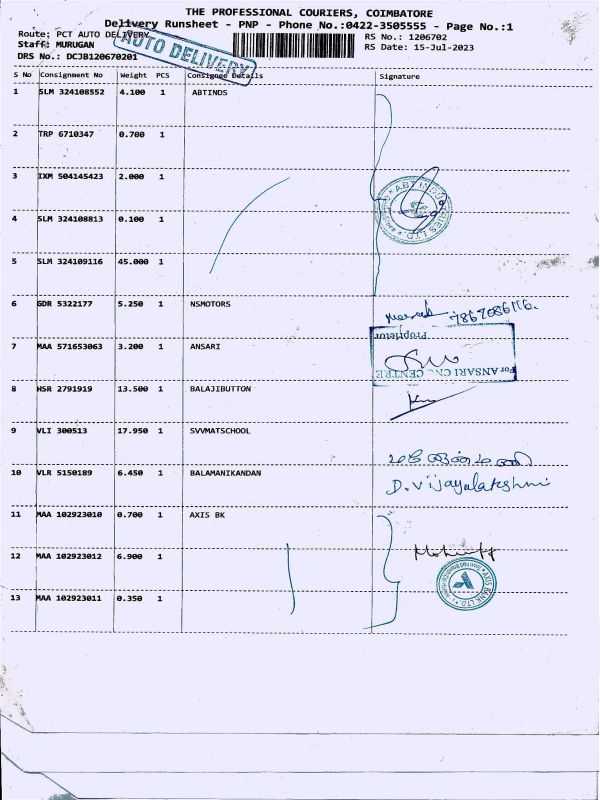 THE PROFESSIONAL COURIERS, COIMBATORE
Delivery Runsheet - PNP - Phone No.:0422-3505555 - Page No.:1
Route: PCT AUTO DELIVERY
RS No.: 1206702
Staff: MURUGAN
RS Date: 15-Jul-2023
DRS No.: DCJB120670201
AUTO DELIVERY
S No Consignment No Weight PCS Consignee Details Signature
1 SLM 324108552 4.100 1 ABTINDS
2 TRP 6710347 0.700 1
3 IXM 504145423 2.000 1
ABT INDUSTRIES LTD
4 SLM 324108813 0.100 1
5 SLM 324109116 45.000 1
6 GDR 5322177 5.250 1 NSMOTORS
For ANSARI CNC CENTRE
Proprietor
7 MAA 571653063 3.200 1 ANSARI
8 HSR 2791919 13.500 1 BALAJIBUTTON
9 VLI 300513 17.950 1 SVVMATSCHOOL
10 VLR 5150189 6.450 1 BALAMANIKANDAN
D. Vijayalakshmi
11 MAA 102923010 0.700 1 AXIS BK
12 MAA 102923012 6.900 1
AXIS BANK LTD
13 MAA 102923011 0.350 1